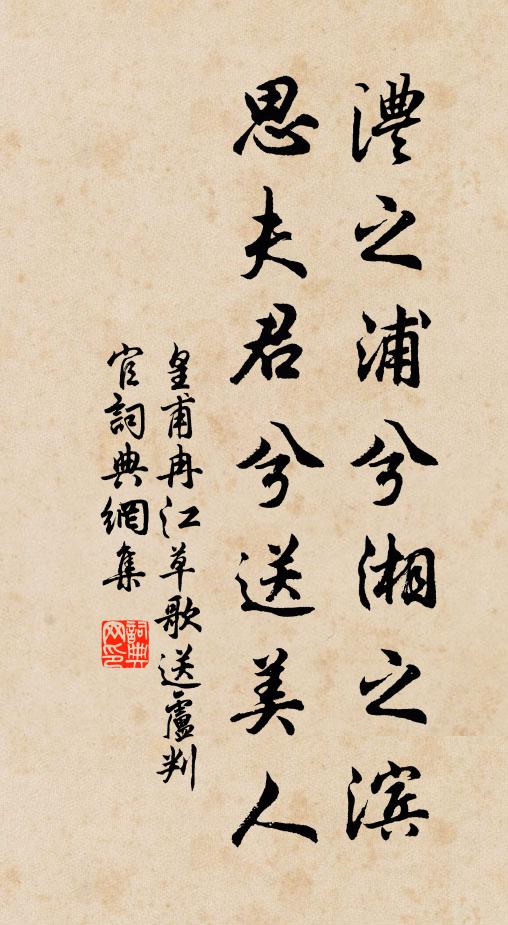 澧之浦兮湘之滨
思夫君兮送美人
皇甫冉江草歌送盧判
官詞典網集
詞典
网印